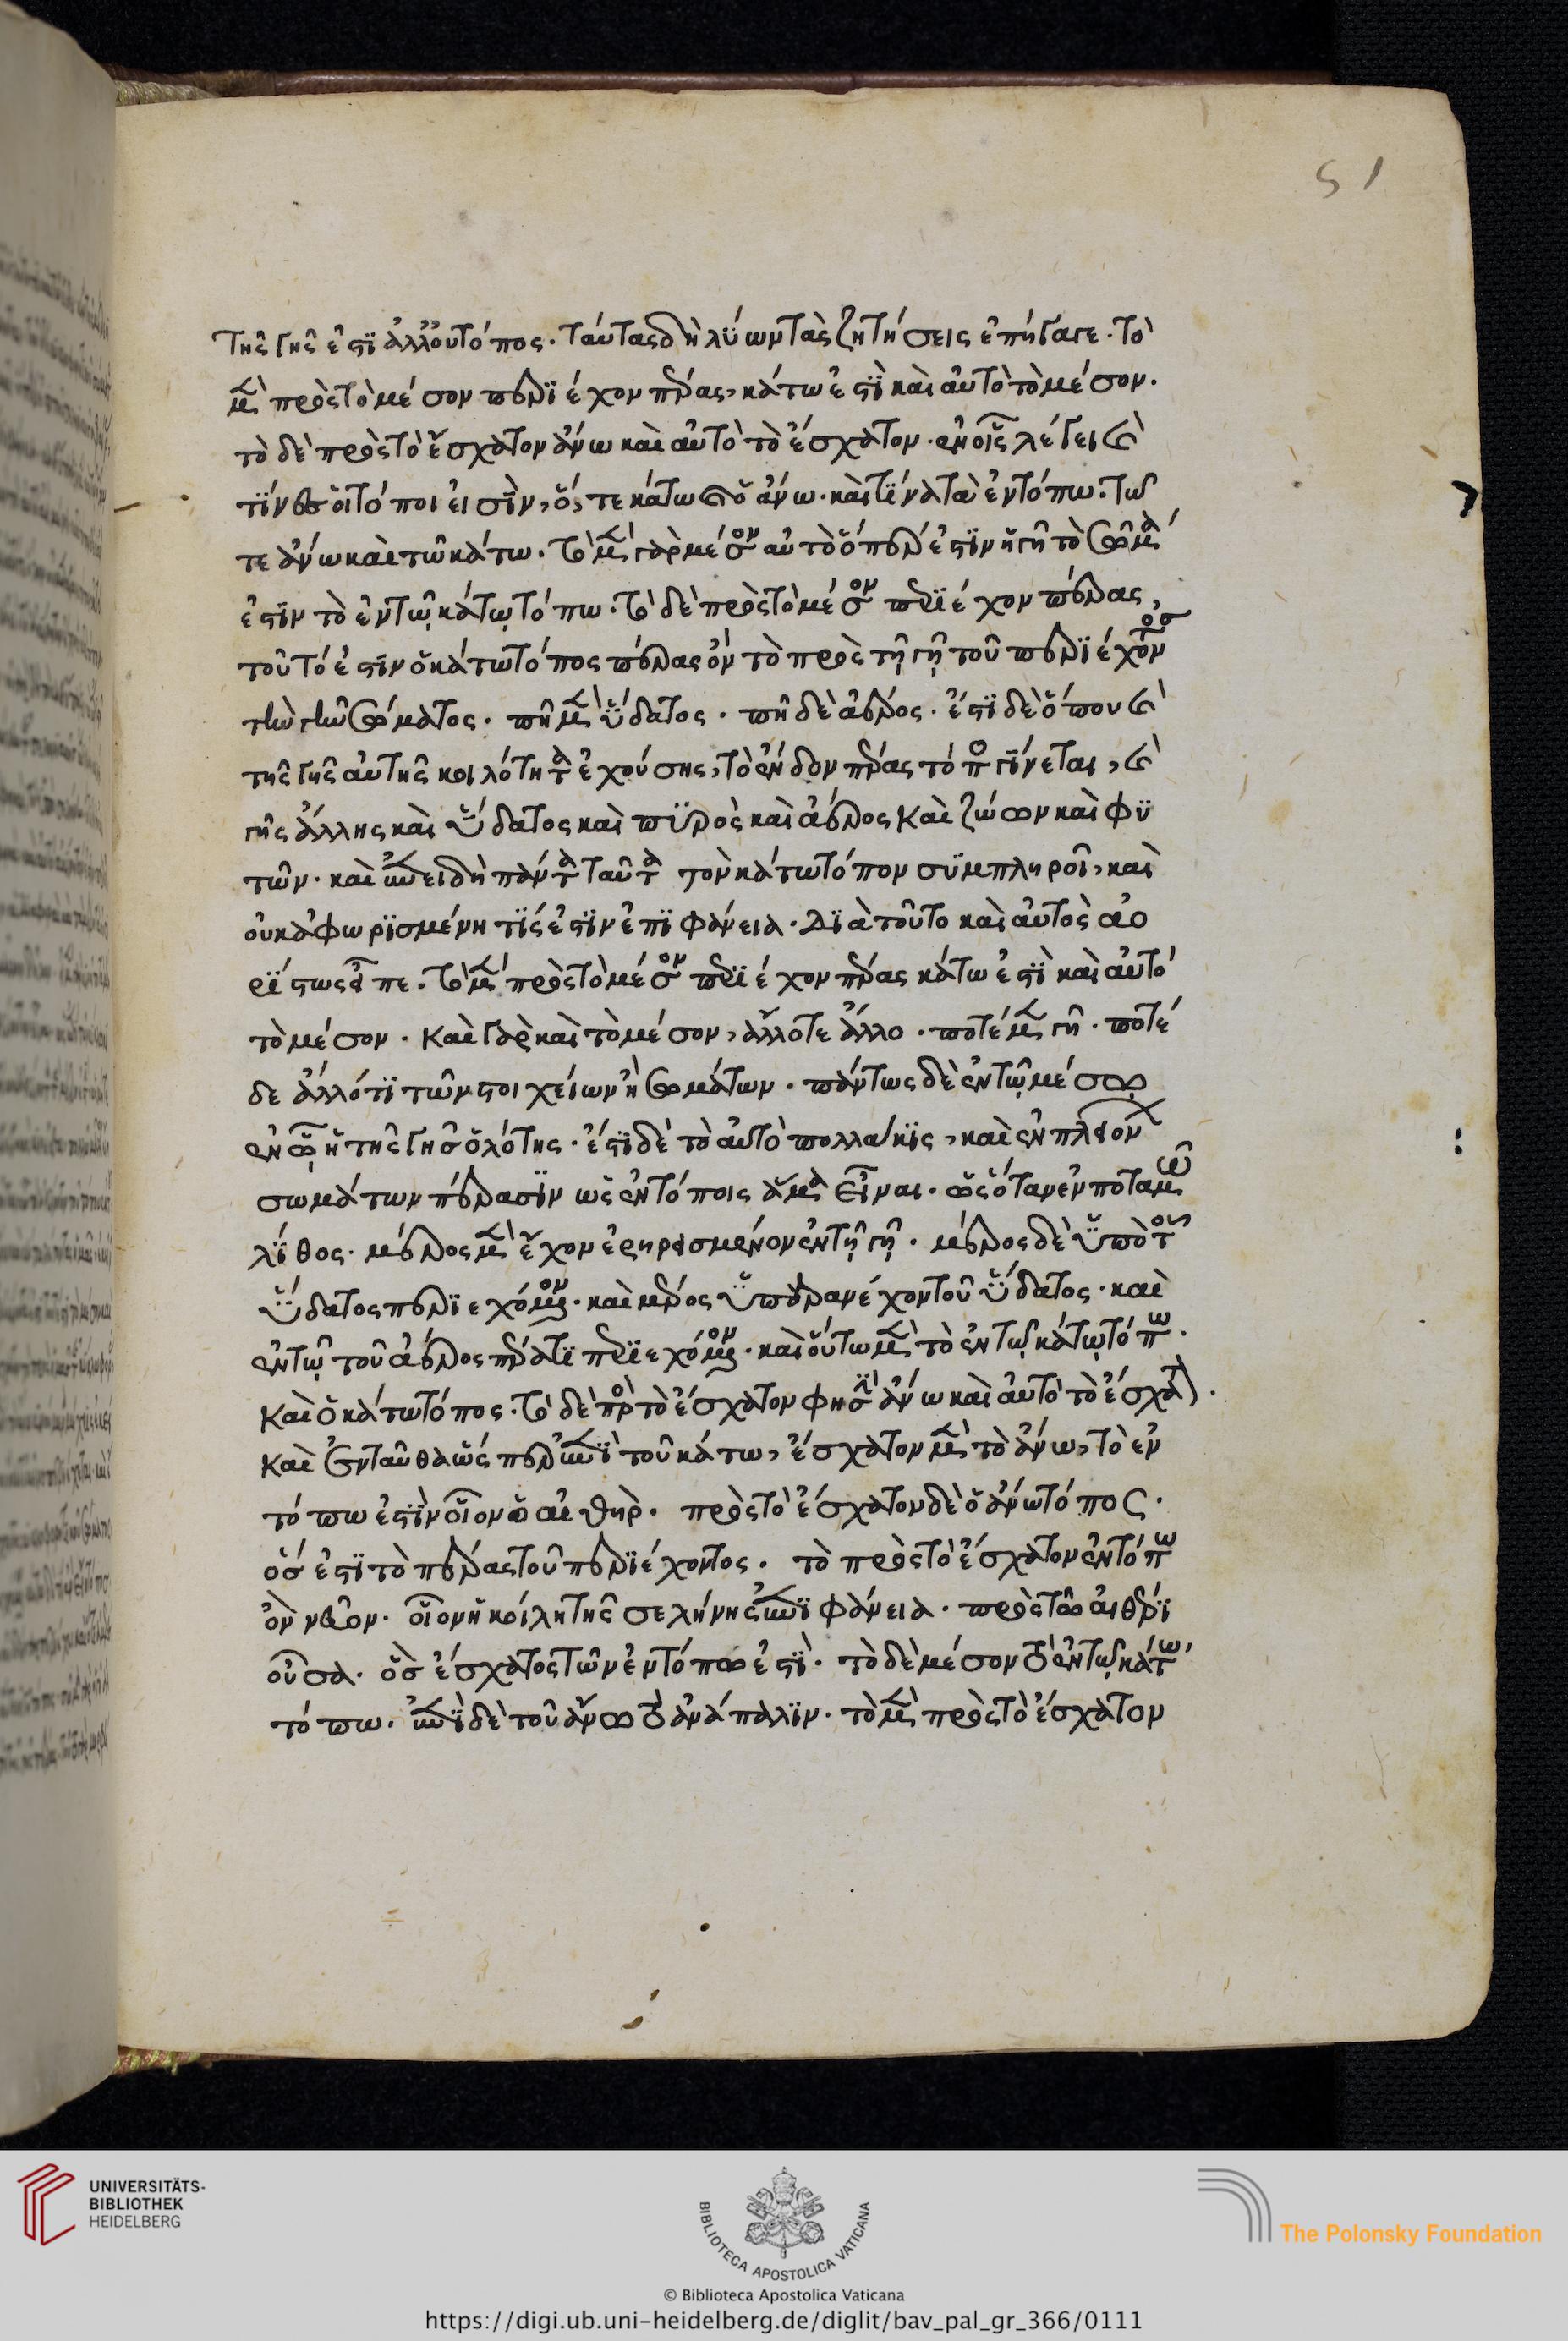 51
τῆς γῆς ἐστὶ ἀλλ' οὐ τόπος. ταύτας δὴ λύων τὰς ζητήσεις ἐπήγαγε. τὸ
μὲν πρὸς τὸ μέσον περιέχον πέρας, κάτω ἐστὶ καὶ αὐτὸ τὸ μέσον.
τὸ δὲ πρὸς τὸ ἔσχατον ἄνω καὶ αὐτὸ τὸ ἔσχατον. ἐν οἷς λέγει καὶ
τίνες οἱ τόποι εἰσὶν, ὅ, τε κάτω καὶ ὁ ἄνω. καὶ τίνα τὰ ἐν τόπω. τῶ
τε ἄνω καὶ τῶ κάτω. τὸ μὲν γὰρ μέσον αὐτὸ ὅπερ ἐστὶν ἡ γῆ τὸ σῶμά
ἐστιν τὸ ἐν τῷ κάτῳ τόπω. τὸ δὲ πρὸς τὸ μέσον περιέχον πέρας,
τοῦτό ἐστιν ὁ κάτω τόπος πέρας ὂν τὸ πρὸς τῇ γῇ τοῦ περιέχοντος
τὴν γῆν σώματος. πῆ μὲν ὕδατος. πῆ δὲ ἀέρος. ἔστι δὲ ὅπου καὶ
τῆς γῆς αὐτῆς κοιλότητα ἐχούσης, τὸ ἔνδον πέρας τόπος γίνεται, καὶ
γῆς ἄλλης καὶ ὕδατος καὶ πυρὸς καὶ ἀέρος καὶ ζώων καὶ φυ
τῶν. καὶ ἐπειδὴ πάντα ταῦτα τὸν κάτω τόπον συμπληροῖ, καὶ
οὐκ ἀφωρισμένη τίς ἐστιν ἐπιφάνεια. διὰ τοῦτο καὶ αὐτὸς ἀο
ρίστως εἶπε. τὸ μὲν πρὸς τὸ μέσον περιέχον πέρας κάτω ἐστὶ καὶ αὐτὸ
τὸ μέσον. καὶ γὰρ καὶ τὸ μέσον, ἄλλοτε ἄλλο. ποτὲ μὲν γῆ. ποτέ
δε ἄλλό τι τῶν στοιχείων ἢ σωμάτων. πάντως δὲ ἐν τῷ μέσῳ
ἐν ᾧ ἡ τῆς γῆς ὁλότης. ἔστι δὲ τὸ αὐτὸ πολλάκις, καὶ ἐν πλειόνων
σωμάτων πέρασιν ὡς ἐν τόποις ἅμα εἶναι. ὡς ὅταν ἐν ποταμῶ
λίθος. μέρος μὲν ἔχον ἐρηρεισμένον ἐν τῇ γῇ. μέρος δὲ ὑπὸ τοῦ
ὕδατος περιεχόμενον. καὶ μέρος ὑπεράνέχον τοῦ ὕδατος. καὶ
ἐν τῷ τοῦ ἀέρος πέρατι περιεχόμενον. καὶ οὕτω μὲν τὸ ἐν τῷ κάτῳ τόπω.
καὶ ὁ κάτω τόπος. τὸ δὲ πρὸς τὸ ἔσχατον φησὶν ἄνω καὶ αὐτὸ τὸ ἔσχατον.
καὶ ἐνταῦθα ὥς περ ἐπὶ τοῦ κάτω, ἔσχατον μὲν τὸ ἄνω, τὸ ἐν
τόπω ἐστὶν οἷον ὁ αἰθήρ. πρὸς τὸ ἔσχατον δὲ ὁ ἄνω τόπος.
ὅς ἐστι τὸ πέρας τοῦ περιέχοντος. τὸ πρὸς τὸ ἔσχατον ἐν τόπω
ὂν νεῦον. οἷον ἡ κοίλη τῆς σελήνης ἐπιφάνεια. πρὸς τῶ αἰθέρι
οὖσα. ὃς ἔσχατος τῶν ἐν τόπω ἐστὶ. τὸ δὲ μέσον τὸ ἐν τῷ κάτω
τόπω. ἐπὶ δὲ τοῦ ἄνω τὸ ἀνάπαλιν. τὸ μὲν πρὸς τὸ ἔσχατον
UNIVERSITÄTS-
BIBLIOTHEK
HEIDELBERG
BIBLIOTECA APOSTOLICA VATICANA
The Polonsky Foundation
© Biblioteca Apostolica Vaticana
https://digi.ub.uni-heidelberg.de/diglit/bav_pal_gr_366/0111